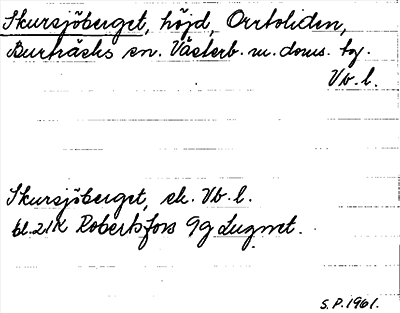 Skursjöberget, höjd, Orrboliden,
Burträsks sn. Västerb. m. doms. bg.
Vb. l.
Skursjöberget, ek. Vb. l.
bl. 21K Robertsfors 9g Lugnet.
S.P. 1961.